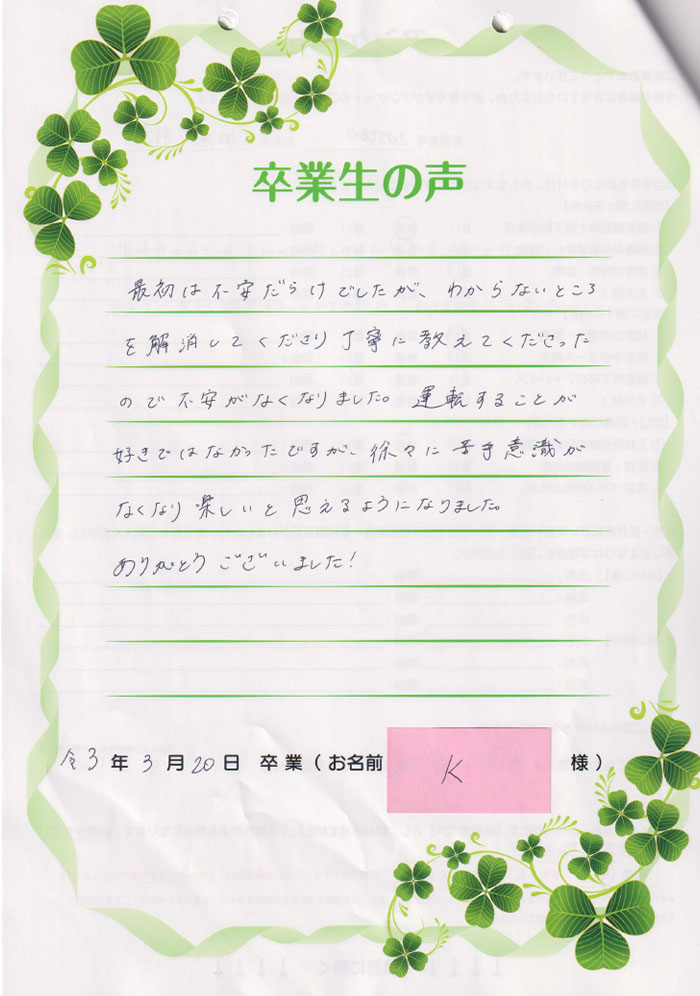 卒業生の声
最初は不安だらけでしたが、わからないところ
を解消してくださり丁寧に教えてくださった
ので不安がなくなりました。運転することが
好きではなかったですが、徐々に苦手意識が
なくなり楽しいと思えるようになりました。
ありがとうございました!
令3年3月20日 卒業(お名前 K 様)